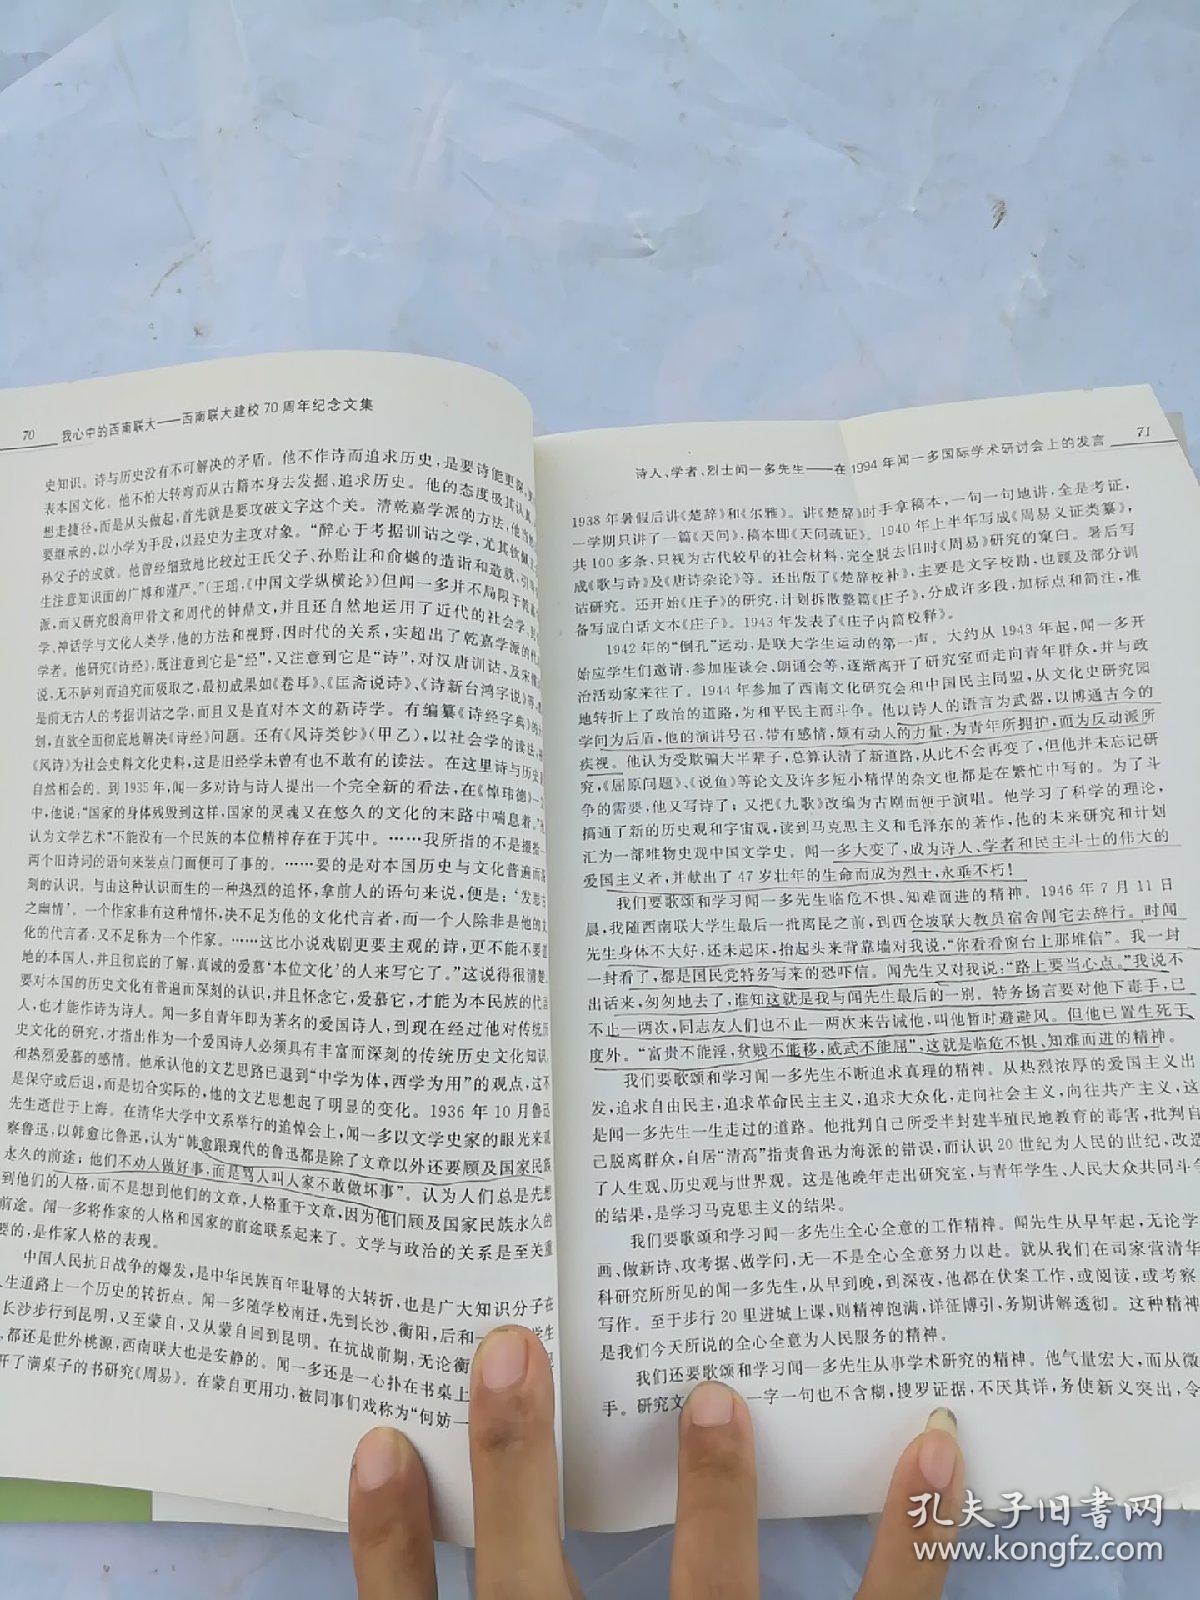 70 我心中的西南联大——西南联大建校70周年纪念文集
史知识。诗与历史没有不可解决的矛盾。他不作诗而追求历史，是要诗能更深
表本国文化。他不怕大转弯而从古籍本身去发掘、追求历史。他的态度极其认真
想走捷径，而是从头做起，首先就是要攻破文字这个关。清乾嘉学派的方法，他当然
要继承的，以小学为手段，以经史为主攻对象。“醉心于考据训诂之学，尤其钦佩
孙父子的成就。他曾经细致地比较过王氏父子、孙贻让和俞樾的造诣和造就，引
生注意知识面的广博和谨严。”（王瑶，《中国文学纵横论》）但闻一多并不局限于乾
派，而又研究殷商甲骨文和周代的钟鼎文，并且还自然地运用了近代的社会学、民
学、神话学与文化人类学，他的方法和视野，因时代的关系，实超出了乾嘉学派的
学者。他研究《诗经》，既注意到它是“经”，又注意到它是“诗”，对汉唐训诂，及宋儒
说，无不胪列而追究而吸取之，最初成果如《卷耳》、《匡斋说诗》、《诗新台鸿字说》等，
是前无古人的考据训诂之学，而且又是直对本文的新诗学。有编纂《诗经字典》的
划，直欲全面彻底地解决《诗经》问题。还有《风诗类钞》（甲乙），以社会学的读法，
《风诗》为社会史料文化史料，这是旧经学未曾有也不敢有的读法。在这里诗与历史
自然相会的。到1935年，闻一多对诗与诗人提出一个完全新的看法，在《悼玮德》一
中，他说：“国家的身体残毁到这样，国家的灵魂又在悠久的文化的末路中喘息着。”他
认为文学艺术“不能没有一个民族的本位精神存在于其中。……我所指的不是掇拾
两个旧诗词的语句来装点门面便可了事的。……要的是对本国历史与文化普遍而深
刻的认识。与由这种认识而生的一种热烈的追怀，拿前人的语句来说，便是：‘发思古
之幽情’。一个作家非有这种情怀，决不足为他的文化代言者，而一个人除非是他的文
化的代言者，又不足称为一个作家。……这比小说戏剧更要主观的诗，更不能不要道
地的本国人，并且彻底的了解，真诚的爱慕‘本位文化’的人来写它了。”这说得很清楚
要对本国的历史文化有普遍而深刻的认识，并且怀念它，爱慕它，才能为本民族的代言
人，也才能作诗为诗人。闻一多自青年即为著名的爱国诗人，到现在经过他对传统历
史文化的研究，才指出作为一个爱国诗人必须具有丰富而深刻的传统历史文化知识
和热烈爱慕的感情。他承认他的文艺思路已退到“中学为体，西学为用”的观点，这不
是保守或后退，而是切合实际的，他的文艺思想起了明显的变化。1936年10月鲁迅
先生逝世于上海。在清华大学中文系举行的追悼会上，闻一多以文学史家的眼光来观
察鲁迅，以韩愈比鲁迅，认为“韩愈跟现代的鲁迅都是除了文章以外还要顾及国家民族
永久的前途；他们不劝人做好事，而是骂人叫人家不敢做坏事”。认为人们总是先想
到他们的人格，而不是想到他们的文章，人格重于文章，因为他们顾及国家民族永久的
前途。闻一多将作家的人格和国家的前途联系起来了。文学与政治的关系是至关重
要的，是作家人格的表现。
中国人民抗日战争的爆发，是中华民族百年耻辱的大转折，也是广大知识分子在
人生道路上一个历史的转折点。闻一多随学校南迁，先到长沙、衡阳，后和一 学生
长沙步行到昆明，又至蒙自，又从蒙自回到昆明。在抗战前期，无论衡
，都还是世外桃源，西南联大也是安静的。闻一多还是一心扑在书桌上
开了满桌子的书研究《周易》。在蒙自更用功，被同事们戏称为“何妨一
诗人、学者、烈士闻一多先生——在1994年闻一多国际学术研讨会上的发言 71
1938年暑假后讲《楚辞》和《尔雅》。讲《楚辞》时手拿稿本，一句一句地讲，全是考证，
一学期只讲了一篇《天问》，稿本即《天问疏证》。1940年上半年写成《周易义证类纂》，
共100多条，只视为古代较早的社会材料，完全脱去旧时《周易》研究的窠臼。暑后写
成《歌与诗》及《唐诗杂论》等。还出版了《楚辞校补》，主要是文字校勘，也顾及部分训
诂研究。还开始《庄子》的研究，计划拆散整篇《庄子》，分成许多段，加标点和简注，准
备写成白话文本《庄子》。1943年发表了《庄子内篇校释》。
1942年的“倒孔”运动，是联大学生运动的第一声。大约从1943年起，闻一多开
始应学生们邀请，参加座谈会、朗诵会等，逐渐离开了研究室而走向青年群众，并与政
治活动家来往了。1944年参加了西南文化研究会和中国民主同盟，从文化史研究园
地转折上了政治的道路，为和平民主而斗争。他以诗人的语言为武器，以博通古今的
学问为后盾，他的演讲号召，带有感情，颇有动人的力量，为青年所拥护，而为反动派所
疾视。他认为受欺骗大半辈子，总算认清了新道路，从此不会再变了，但他并未忘记研
究，《屈原问题》、《说鱼》等论文及许多短小精悍的杂文也都是在繁忙中写的。为了斗
争的需要，他又写诗了；又把《九歌》改编为古剧而便于演唱。他学习了科学的理论，
搞通了新的历史观和宇宙观，读到马克思主义和毛泽东的著作，他的未来研究和计划
汇为一部唯物史观中国文学史。闻一多大变了，成为诗人、学者和民主斗士的伟大的
爱国主义者，并献出了47岁壮年的生命而成为烈士，永垂不朽！
我们要歌颂和学习闻一多先生临危不惧、知难而进的精神。1946年7月11日
晨，我随西南联大学生最后一批离昆之前，到西仓坡联大教员宿舍闻宅去辞行。时闻
先生身体不大好，还未起床，抬起头来背靠墙对我说，“你看看窗台上那堆信”。我一封
一封看了，都是国民党特务写来的恐吓信。闻先生又对我说：“路上要当心点。”我说不
出话来，匆匆地去了，谁知这就是我与闻先生最后的一别。特务扬言要对他下毒手，已
不止一两次，同志友人们也不止一两次来告诫他，叫他暂时避避风。但他已置生死于
度外。“富贵不能淫，贫贱不能移，威武不能屈”，这就是临危不惧、知难而进的精神。
我们要歌颂和学习闻一多先生不断追求真理的精神。从热烈浓厚的爱国主义出
发，追求自由民主，追求革命民主主义，追求大众化，走向社会主义，向往共产主义，这
是闻一多先生一生走过的道路。他批判自己所受半封建半殖民地教育的毒害，批判自
己脱离群众，自居“清高”指责鲁迅为海派的错误，而认识20世纪为人民的世纪，改造
了人生观、历史观与世界观。这是他晚年走出研究室，与青年学生、人民大众共同斗争
的结果，是学习马克思主义的结果。
我们要歌颂和学习闻一多先生全心全意的工作精神。闻先生从早年起，无论学
画、做新诗、攻考据、做学问，无一不是全心全意努力以赴。就从我们在司家营清华
科研究所所见的闻一多先生，从早到晚，到深夜，他都在伏案工作，或阅读，或考察
写作。至于步行20里进城上课，则精神饱满，详征博引，务期讲解透彻。这种精神
是我们今天所说的全心全意为人民服务的精神。
我们还要歌颂和学习闻一多先生从事学术研究的精神。他气量宏大，而从微
手。研究文 一字一句也不含糊，搜罗证据，不厌其详，务使新义突出，令
孔夫子旧书网
www.kongfz.com